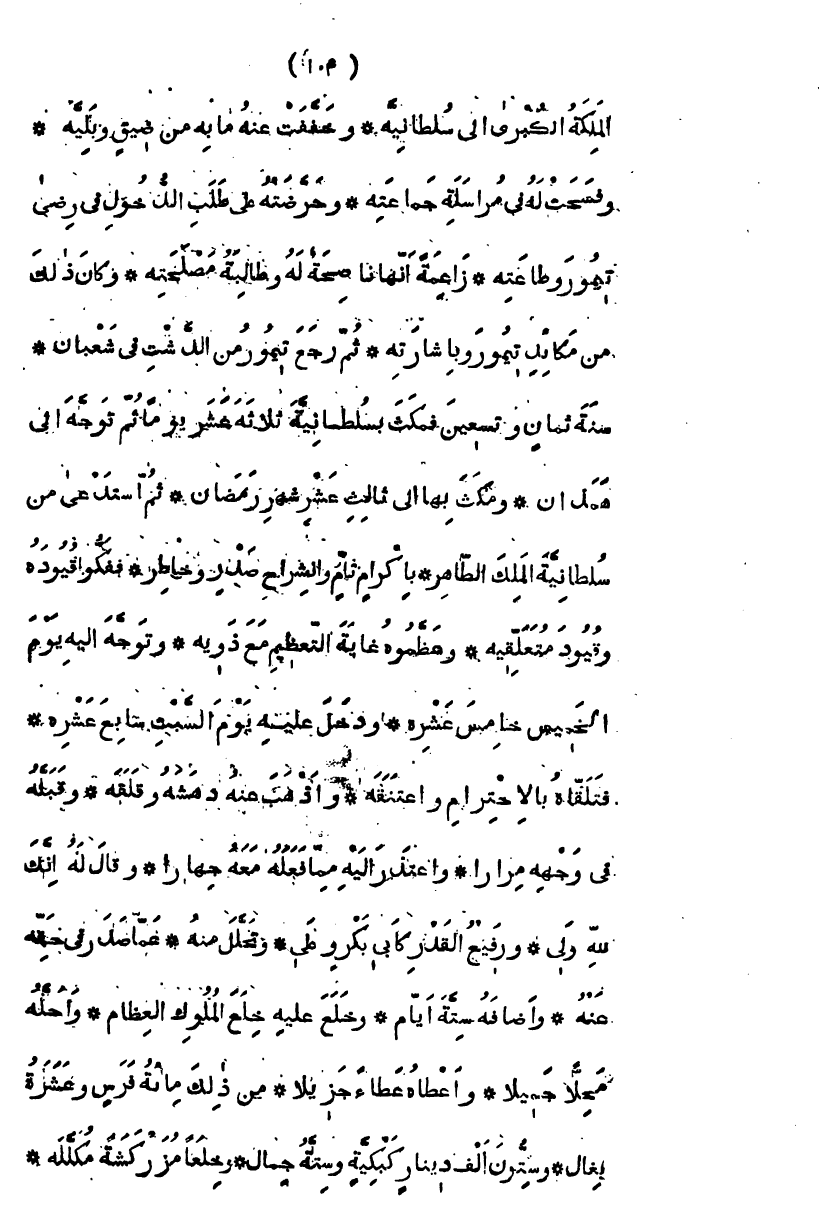 (١٠٥)
المَلِكَةُ الكُبْرَى الى سُلطانِيَّه * و خَفَّفَتْ عنهُ ما بِه من ضِيقٍ و بَلِيَّه *
و فَسَحَتْ لَهُ فى مُراسَلَةِ جَماعَتِه * و حَرَّضَتْهُ على طَلَبِ الدُّخُولِ فى رِضَى
تَيمُورَ و طاعَتِه * زَاعِمَةً اَنَّها ناصِحَةٌ لَهُ و طالِبَةٌ مَصْلَحَتِه * وَ كانَ ذٰلكَ
من مَكائِدِ تِيمُورَ و بِاِشارَتِه * ثُمَّ رَجَعَ تِيمُورُ من الدَّشْتِ فى شَعْبان *
سنَةَ ثمانٍ و تسعينَ فمكَثَ بسُلطانِيَّةَ ثلاثَةَ عَشَرَ يومًا ثُمَّ تَوَجَّهَ الى
هَمَدان * ومَكَثَ بِها الى ثالِثِ عَشْرِ شهرِ رَمَضان * ثُمَّ استَدْعى من
سُلطانِيَّةَ المَلِكَ الطّاهِر * بِاِكْرامٍ تامٍّ وانْشِراحِ صَدْرٍ و خاطِر * ففَكُّوا قُيُودَهُ
وقُيُودَ مُتَعَلِّقِيه * و عَظَّمُوهُ غايَةَ التَّعظِيمِ مَعَ ذَوِيه * و تَوجَّهَ اليهِ يَوْمَ
الخَمِيسِ خامِسَ عَشْرِه * ودخَلَ عليه يَوْمَ السَّبْتِ سابِعَ عَشْرِه *
فتَلَقّاهُ بالاِحْتِرامِ و اعتَنَقَه * و اَذْهَبَ عنهُ دَهْشَهُ و قَلَقَه * و قَبَّلَهُ
فى وَجْهِهِ مِرارا * و اعتَذَرَ اِلَيْهِ مِمّا فعَلَهُ مَعَهُ جِهارا * و قالَ لَهُ اِنَّكَ
للهِ وَلِى * و رَفِيعُ القَدْرِ كَاَبِى بَكْرٍ و عَلِى * وتَحَلَّلَ منهُ * عَمّا صَدَرَ فى حَقِّه
عَنْهُ * و اَضافَهُ ستَّةَ اَيّام * و خَلَعَ عليهِ خِلَعَ المُلُوكِ العِظام * و اَحَلَّهُ
مَحِلًّا جَمِيلا * و اَعْطاهُ عَطاءً جَزِيلا * مِن ذٰلِكَ مِائَةُ فَرَسٍ و عَشَرَةُ
بِغال * و سِتُّونَ اَلْفَ دِينارٍ كَبَكِيَّةٍ و سِتَّةُ جِمال * و خِلَعاً مُزَرْكَشَةً مُكَلَّلَه *